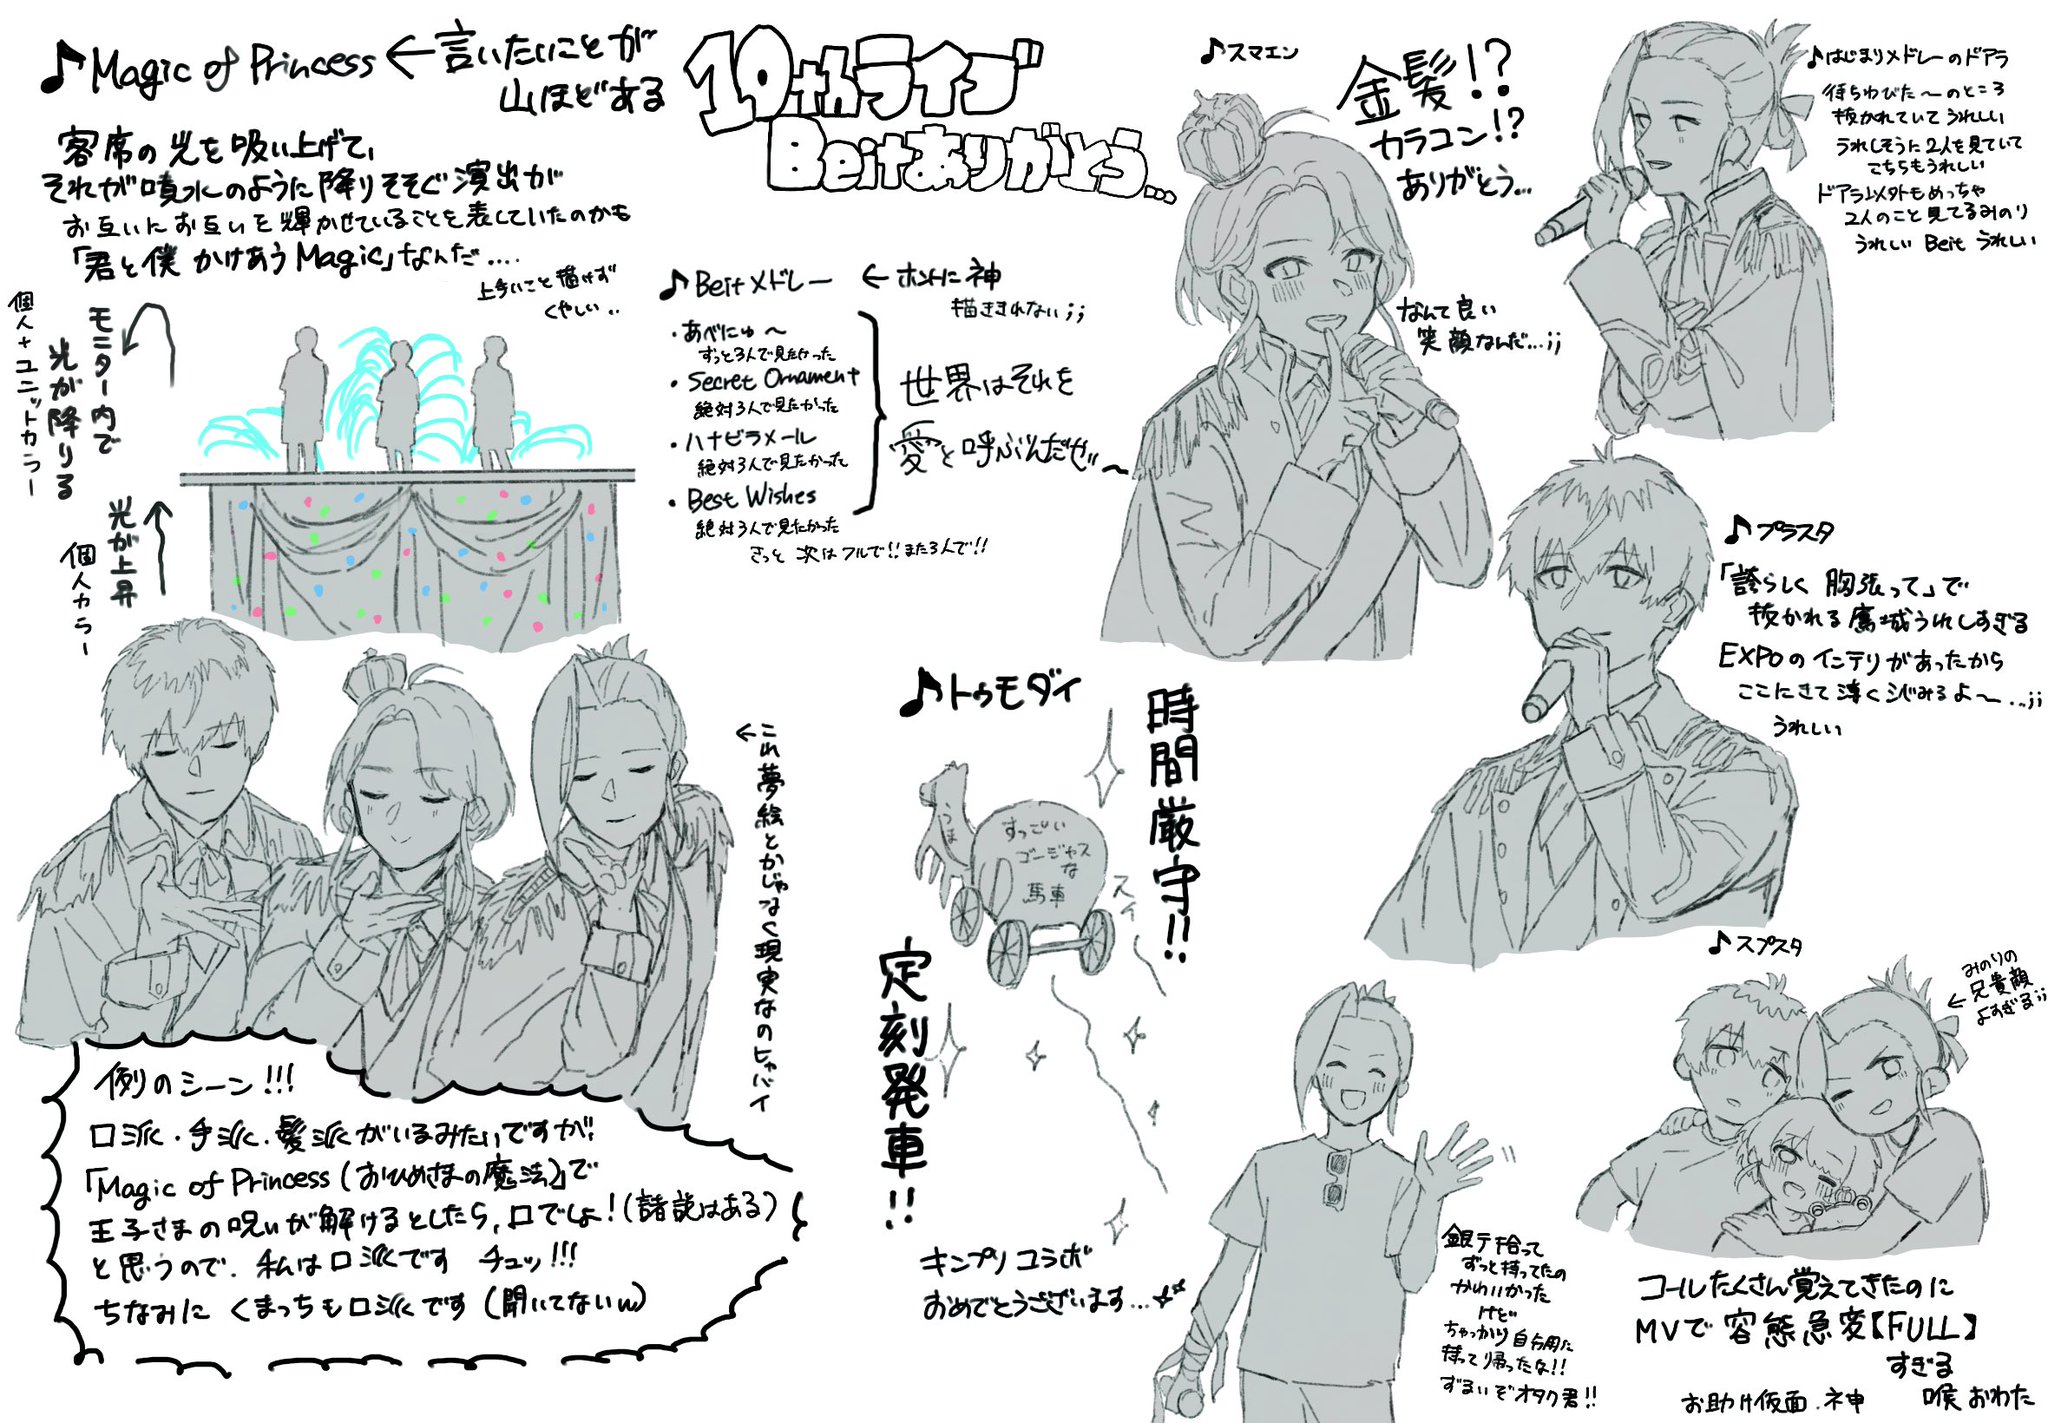 ♪Magic of Princess ← 言いたいことが
山ほどある
客席の光を吸い上げて、
それが噴水のように降りそそぐ演出が
お互いにお互いを輝かせていることを表していたのかも
「君と僕 かけあうMagic」なんだ....
上手いこと描けず
くやしい..
モニター内で
光が降りる
個人+ユニットカラー
光が上昇
個人カラー
10thライブ
Beitありがとう...
♪Beitメドレー ← ホントに神
描ききれない;;
・あべにゅ〜
ずっと3人で見たかった
・Secret Ornament
絶対3人で見たかった
・ハナビラメール
絶対3人で見たかった
・Best Wishes
絶対3人で見たかった
きっと 次はフルで!!また3人で!!
世界はそれを
愛と呼ぶんだぜ〜
♪スマエン
金髪!?
カラコン!?
ありがとう...
なんて良い
笑顔なんだ...;;
♪はじまりメドレーのドアラ
待ちわびた〜のところ
抜かれていてうれしい
うれしそうに2人を見ていて
こちらもうれしい
ドアラ以外もめっちゃ
2人のこと見てるみのり
うれしい Beit うれしい
♪プラスタ
「誇らしく 胸張って」で
抜かれる鷹城うれしすぎる
EXPOのインテリがあったから
ここにきて凄く沁みるよ〜...;;
うれしい
←これ夢絵とかじゃなく現実なのヒャバイ
例のシーン!!!
口派・手派・髪派がいるみたいですが!
「Magic of Princess(おひめさまの魔法)」で
王子さまの呪いが解けるとしたら、口でしょ!(諸説はある)
と思うので、私は口派です チュッ!!!
ちなみに くまっちも口派です(聞いてないw)
♪トゥモダイ
時間厳守!!
定刻発車!!
うま
すっごい
ゴージャス
な
馬車
スイ
キンプリコラボ
おめでとうございます...
銀テ拾って
ずっと持ってたの
かわいかった
けど
ちゃっかり自分用に
持って帰ったな!!
ずるいぞオタク君!!
♪スプスタ
みのりの
←兄貴顔
よすぎる;;
コールたくさん覚えてきたのに
MVで容態急変【FULL】
すぎる
喉おわた
お助け仮面、神